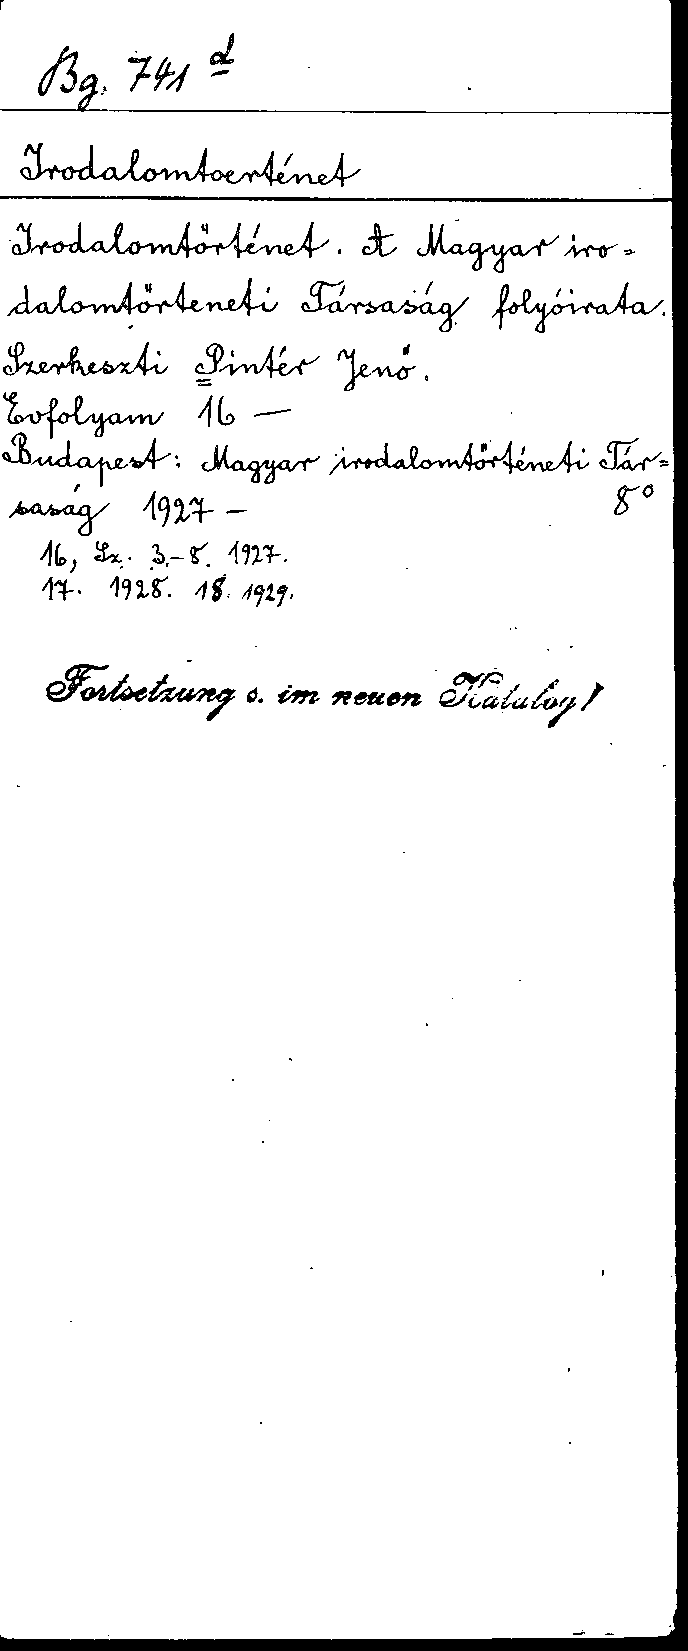 Bg. 741 d
Irodalomtoerténet
Irodalomtörténet. A Magyar iro=
dalomtörteneti Társaság folyóirata.
Szerkeszti Pintér Jenő.
Evfolyam 16 —
Budapest: Magyar irodalomtörténeti Tár=
saság 1927 – 8°
16, Sz. 3.–8. 1927.
17. 1928. 18. 1929.
Fortsetzung s. im neuen Katalog!